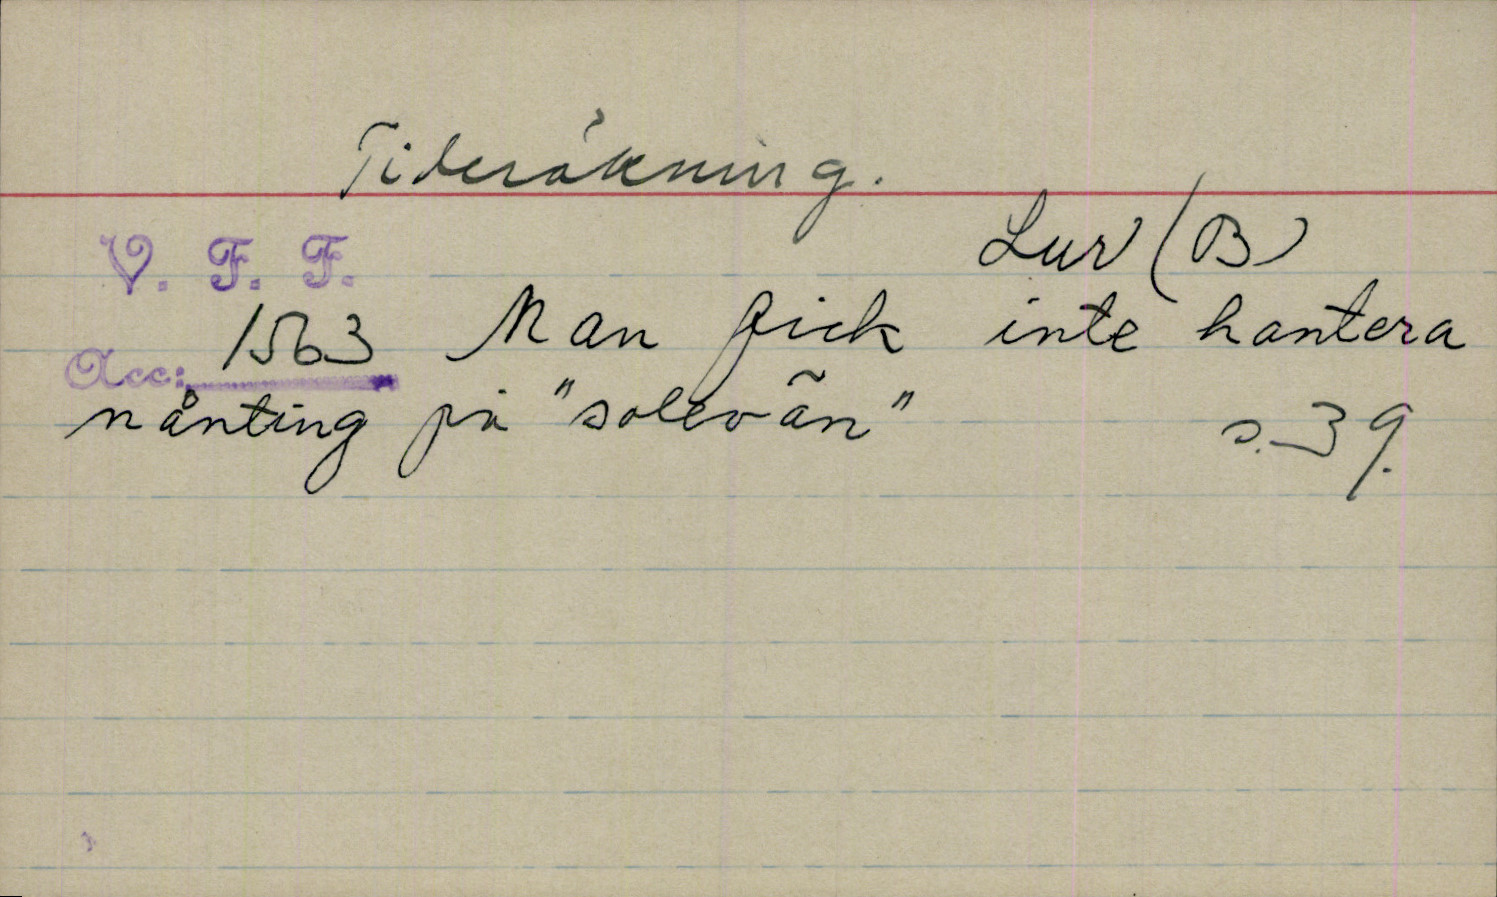 Tideräkning.
Lur (B)
V. F. F.
Acc: 1563 Man fick inte hantera
nånting på "solevän" s. 39.